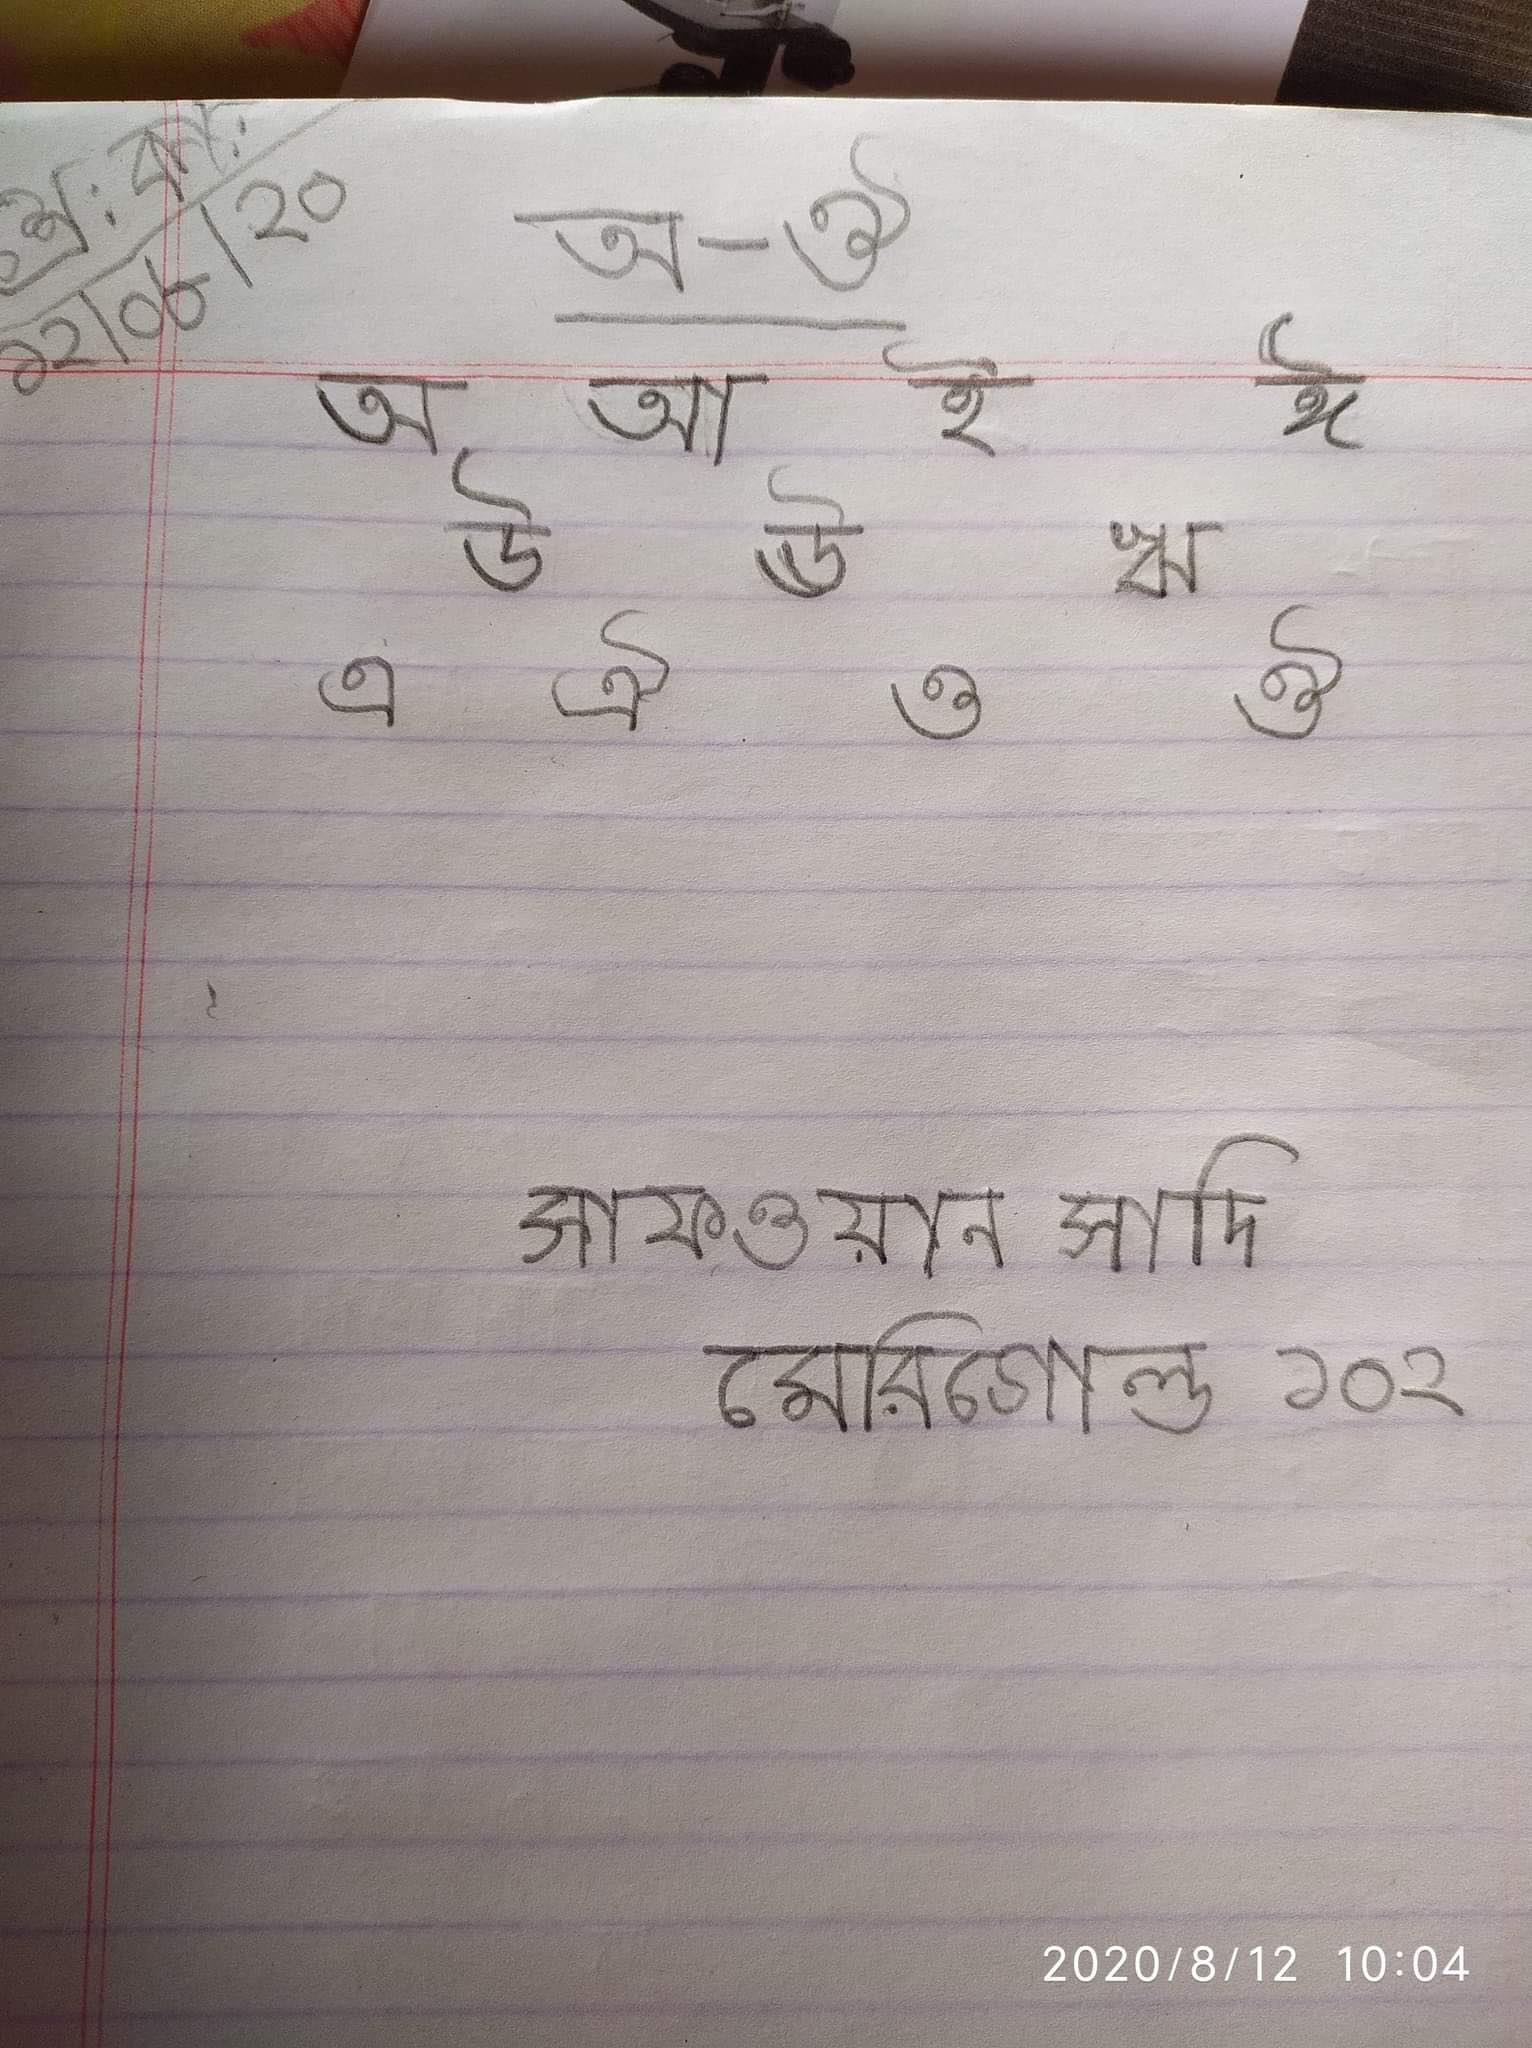 শ্রে: কা:
১২/০৮/২০
অ-ঔ
অ আ ই ঈ
উ ঊ ঋ
এ ঐ ও ঔ
সাফওয়ান সাদি
মেরিগোল্ড ১০২
2020/8/12 10:04